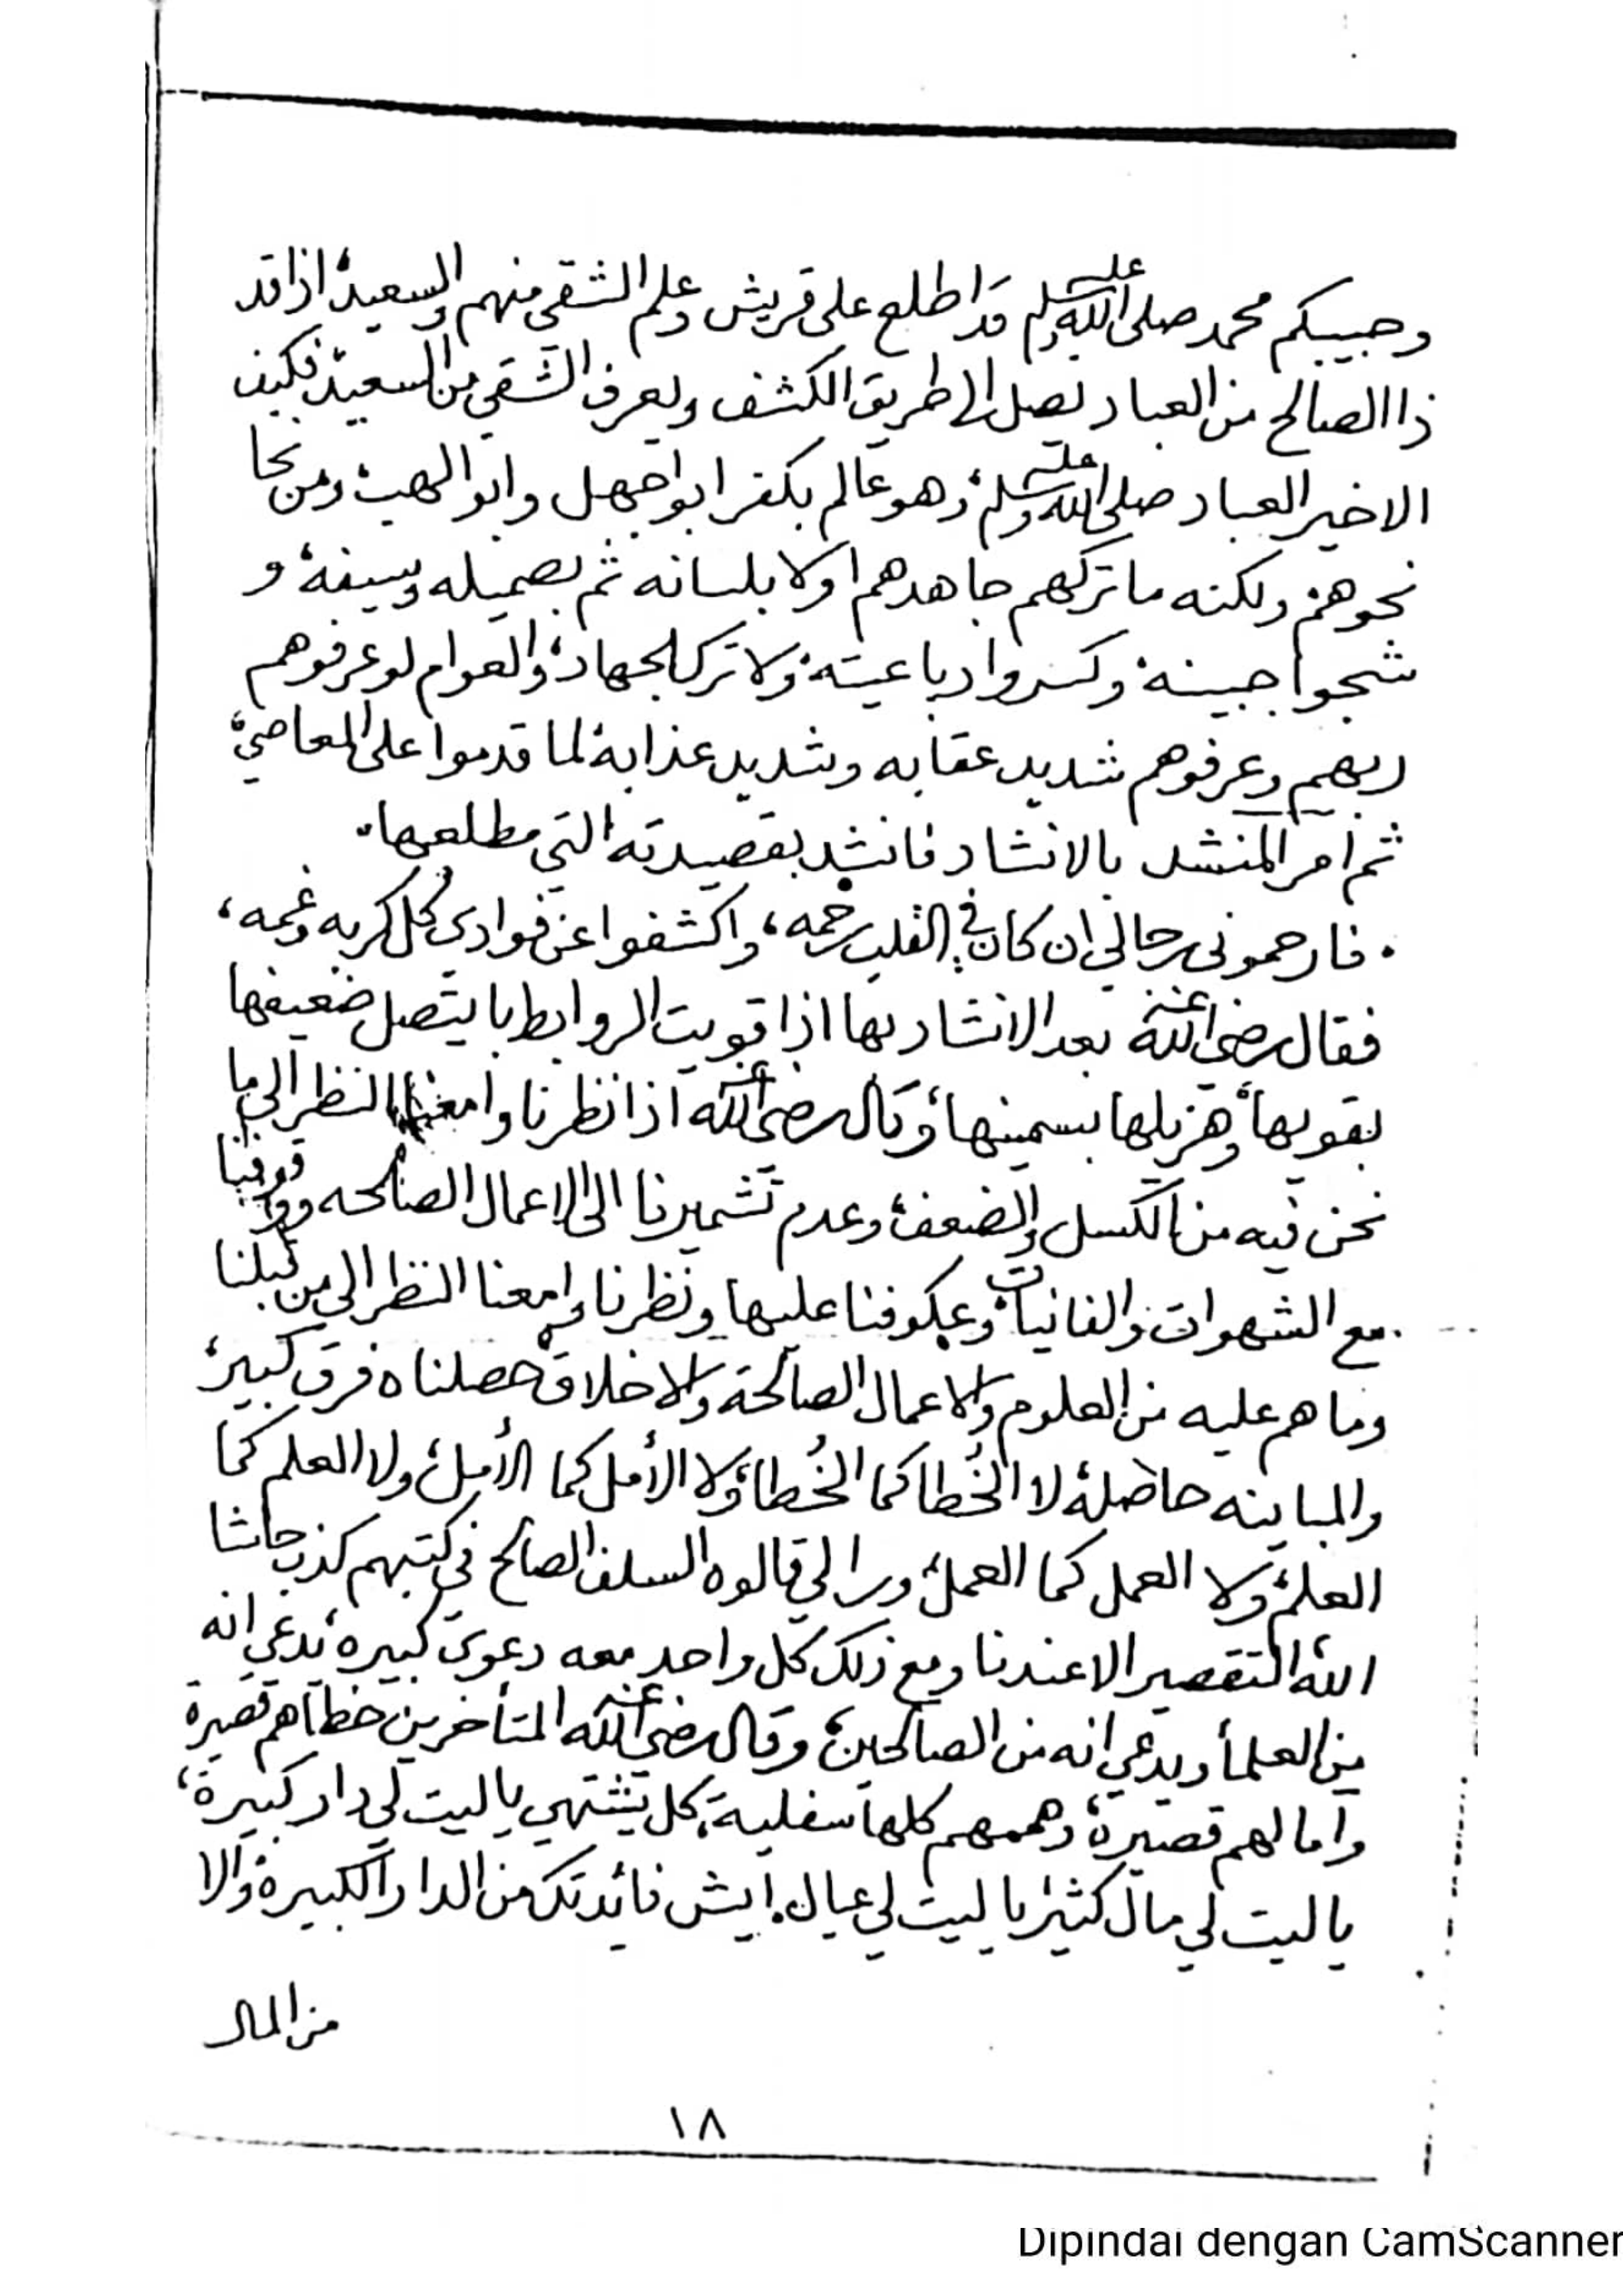 وحبيبكم محمد صلى الله عليه وسلم قد اطلع على قريش وعلم الشقي منهم والسعيد، اذا قد
ذا الصالح من العباد يصل الى طريق الكشف ويعرف الشقي من السعيد، فكيف
الاخير العباد صلى الله عليه وسلم، وهو عالم بكفر ابو جهل وابو الهب، ومن نحا
نحوهم، ولكنه ما تركهم جاهدهم اولا بلسانه ثم بصميله وبسيفه، و
شجوا جبينه، وكسروا رباعيته، ولا ترك الجهاد، والعوام لو عرفوهم
ربهم وعرفوهم شديد عقابه وشديد عذابه، لما قدموا على المعاصي،
ثم امر المنشد بالانشاد فانشد بقصيدته التي مطلعها.
. فارحموني رجالي ان كان في القلب رحمه، واكشفوا عن فوادي كل كربه وغمه،
فقال رضي الله عنه بعد الانشاد بها اذا قويت الروابط با يتصل ضعيفها
بقويها، وهزيلها بسمينها، وقال رضي الله عنه اذا نظرنا وامعنا النظر الى ما
نحن فيه من الكسل والضعف، وعدم تشميرنا الى الاعمال الصالحه ووقوفنا
مع الشهوات والفانيات، وعكوفنا عليها ونظرنا وامعنا النظر الى من قبلنا
وما هم عليه من العلوم والاعمال الصالحة والاخلاق حصلناه فرق كبير،
والمباينه حاصلة، لا الخُطا كما الخُطا، ولا الأمل كما الأمل، ولا العلم كما
العلم، ولا العمل كما العمل، ورا لي قالوه السلف الصالح في كتبهم كذب حاشا
الله، التقصير الا عندنا ومع ذلك كل واحد معه دعوى كبيره، يدعي انه
من العلمأ ويدعي انه من الصالحين، وقال رضي الله عنه المتأخرين خطاهم قصيرة
وامالهم قصيرة، وهممهم كلها سفليه، كل يشتهي يا ليت لي دار كبيرة،
يا ليت لي مال كثير، يا ليت لي عيال، ايش فائدتك من الدار الكبيرة، والا
من المال
١٨
Dipindai dengan CamScanner